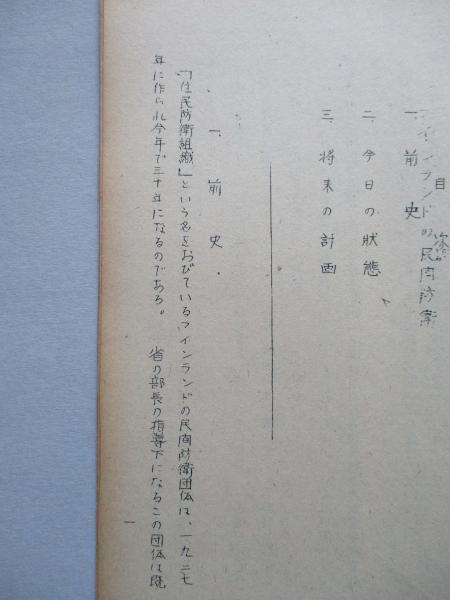 フインランドの民間防衛
目
一、前史
二、今日の狀態
三、将来の計画
一、前史．
「住民防衛組織」という名をおびているフインランドの民間防衛団体は、一九二七
年に作られ今年で三十年になるのである。　省の部長の指導下になるこの団体は既
一